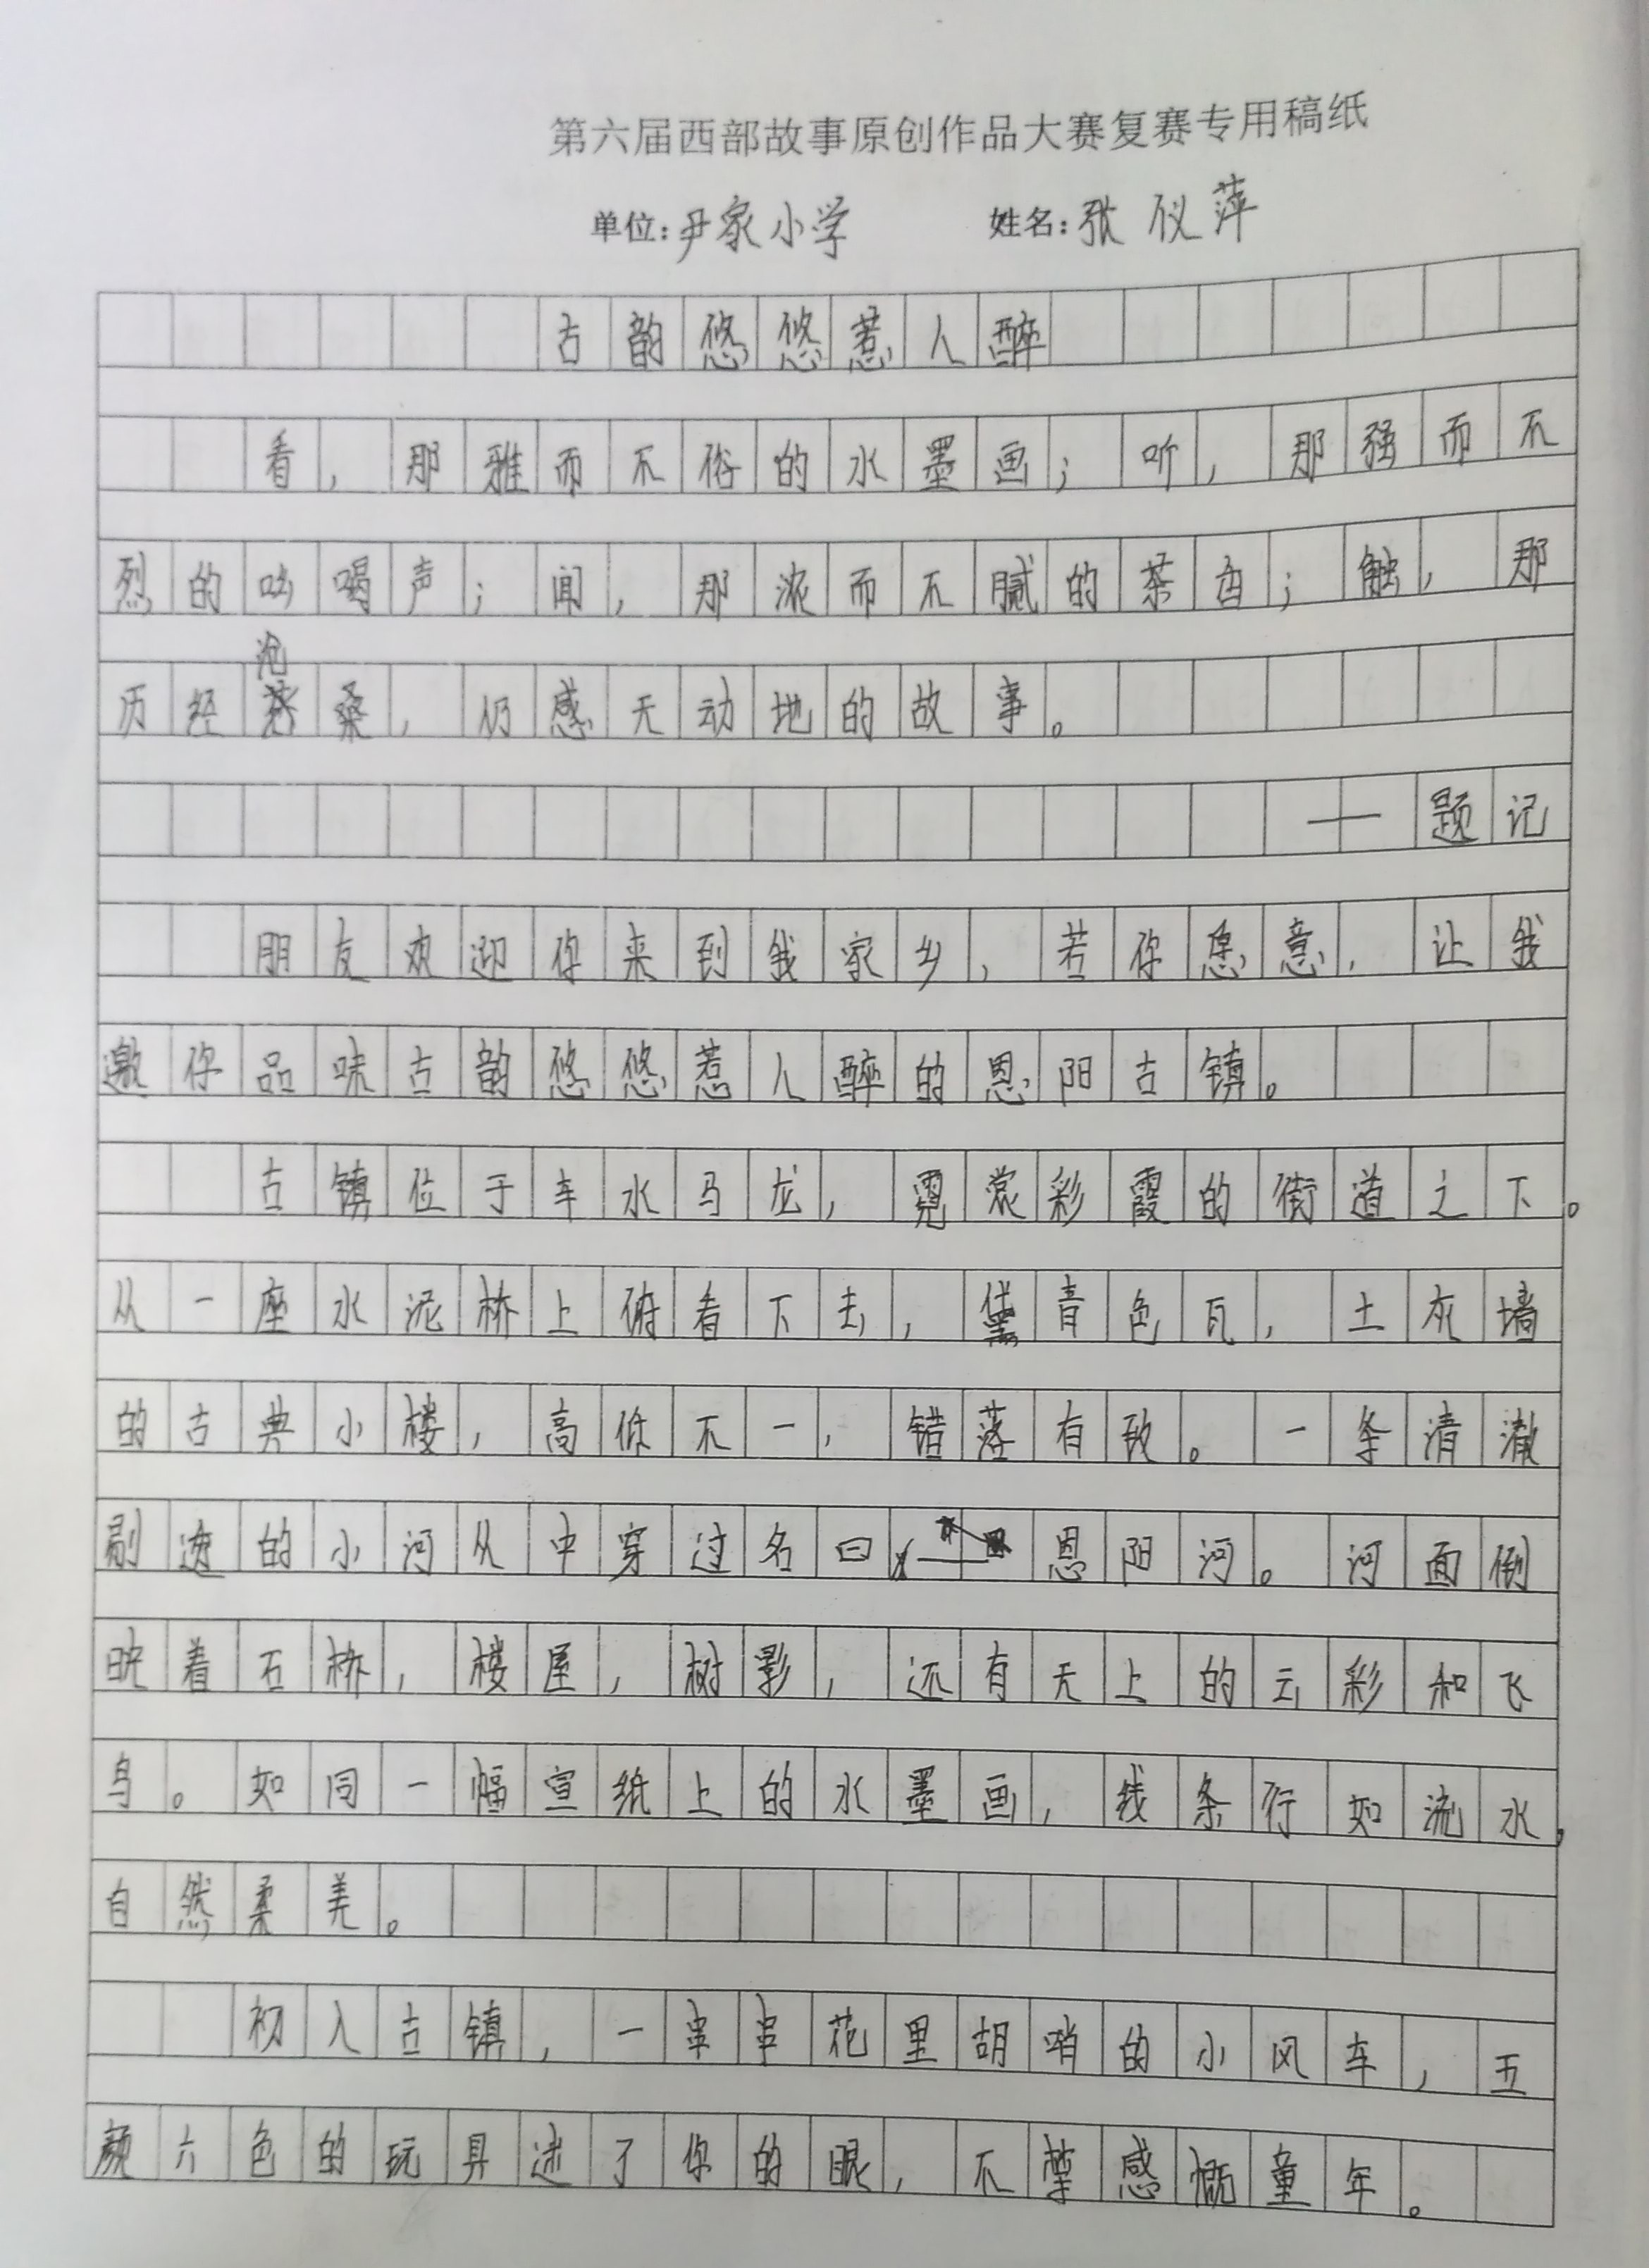 第六届西部故事原创作品大赛复赛专用稿纸
单位：尹家小学 姓名：张仪萍
古韵悠悠惹人醉
看，那雅而不俗的水墨画；听，那强而不
烈的吆喝声；闻，那浓而不腻的茶香；触，那
沧
历经桑，仍感天动地的故事。
——题记
朋友欢迎你来到我家乡，若你愿意，让我
邀你品味古韵悠悠惹人醉的恩阳古镇。
古镇位于车水马龙，霓裳彩霞的街道之下。
从一座水泥桥上俯看下去，黛青色瓦，土灰墙
的古典小楼，高低不一，错落有致。一条清澈
剔透的小河从中穿过名曰恩阳河。河面倒
映着石桥，楼屋，树影，还有天上的云彩和飞
鸟。如同一幅宣纸上的水墨画，线条行如流水，
自然柔美。
初入古镇，一串串花里胡哨的小风车，五
颜六色的玩具迷了你的眼，不禁感慨童年。